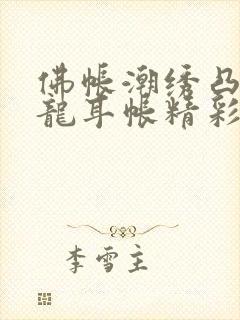 佛帐潮绣凸
龍耳帐精彩
李雪主